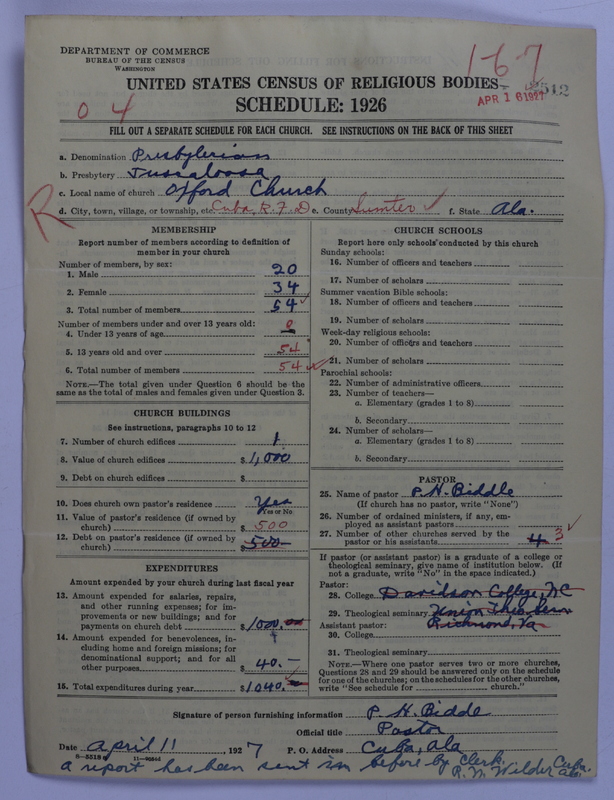 DEPARTMENT OF COMMERCE
BUREAU OF THE CENSUS
WASHINGTON
1-6-7
UNITED STATES CENSUS OF RELIGIOUS BODIES
APR 16 1927
0 4
SCHEDULE: 1926
FILL OUT A SEPARATE SCHEDULE FOR EACH CHURCH. SEE INSTRUCTIONS ON THE BACK OF THIS SHEET
a. Denomination Presbyterian
b. Presbytery Tuscaloosa
c. Local name of church Oxford Church
R
d. City, town, village, or township, etc. Cuba, R.F.D e. County Sumter f. State Ala.
MEMBERSHIP
Report number of members according to definition of
member in your church
Number of members, by sex:
1. Male 20
2. Female 34
3. Total number of members 54
Number of members under and over 13 years old:
4. Under 13 years of age 0
5. 13 years old and over 54
6. Total number of members 54
NOTE.—The total given under Question 6 should be the
same as the total of males and females given under Question 3.
CHURCH BUILDINGS
See instructions, paragraphs 10 to 12
7. Number of church edifices 1
8. Value of church edifices $ 1,000
9. Debt on church edifices $
10. Does church own pastor's residence Yes
Yes or No
11. Value of pastor's residence (if owned by
church) $ 500
12. Debt on pastor's residence (if owned by
church) $ 500
EXPENDITURES
Amount expended by your church during last fiscal year
13. Amount expended for salaries, repairs,
and other running expenses; for im-
provements or new buildings; and for
payments on church debt $ 1000.
14. Amount expended for benevolences, in-
cluding home and foreign missions; for
denominational support; and for all
other purposes $ 40.—
15. Total expenditures during year $ 1040.
CHURCH SCHOOLS
Report here only schools conducted by this church
Sunday schools:
16. Number of officers and teachers
17. Number of scholars
Summer vacation Bible schools:
18. Number of officers and teachers
19. Number of scholars
Week-day religious schools:
20. Number of officers and teachers
21. Number of scholars
Parochial schools:
22. Number of administrative officers
23. Number of teachers—
a. Elementary (grades 1 to 8)
b. Secondary
24. Number of scholars—
a. Elementary (grades 1 to 8)
b. Secondary
PASTOR
25. Name of pastor P. H. Biddle
(If church has no pastor, write "None")
26. Number of ordained ministers, if any, em-
ployed as assistant pastors
27. Number of other churches served by the
pastor or his assistants 4 3
If pastor (or assistant pastor) is a graduate of a college or
theological seminary, give name of institution below. (If
not a graduate, write "No" in the space indicated.)
Pastor:
28. College Davidson College, NC
29. Theological seminary Union Theo Sem
Assistant pastor: Richmond, Va
30. College
31. Theological seminary
NOTE.—Where one pastor serves two or more churches,
Questions 28 and 29 should be answered only on the schedule
for one of the churches; on the schedules for the other churches,
write "See schedule for church."
Signature of person furnishing information P. H. Biddle
Official title Pastor
Date April 11, 1927 P. O. Address Cuba, Ala
8-5518 11-9656d
a report has been sent in before by Clerk.
R. N. Wilder Cuba Ala.